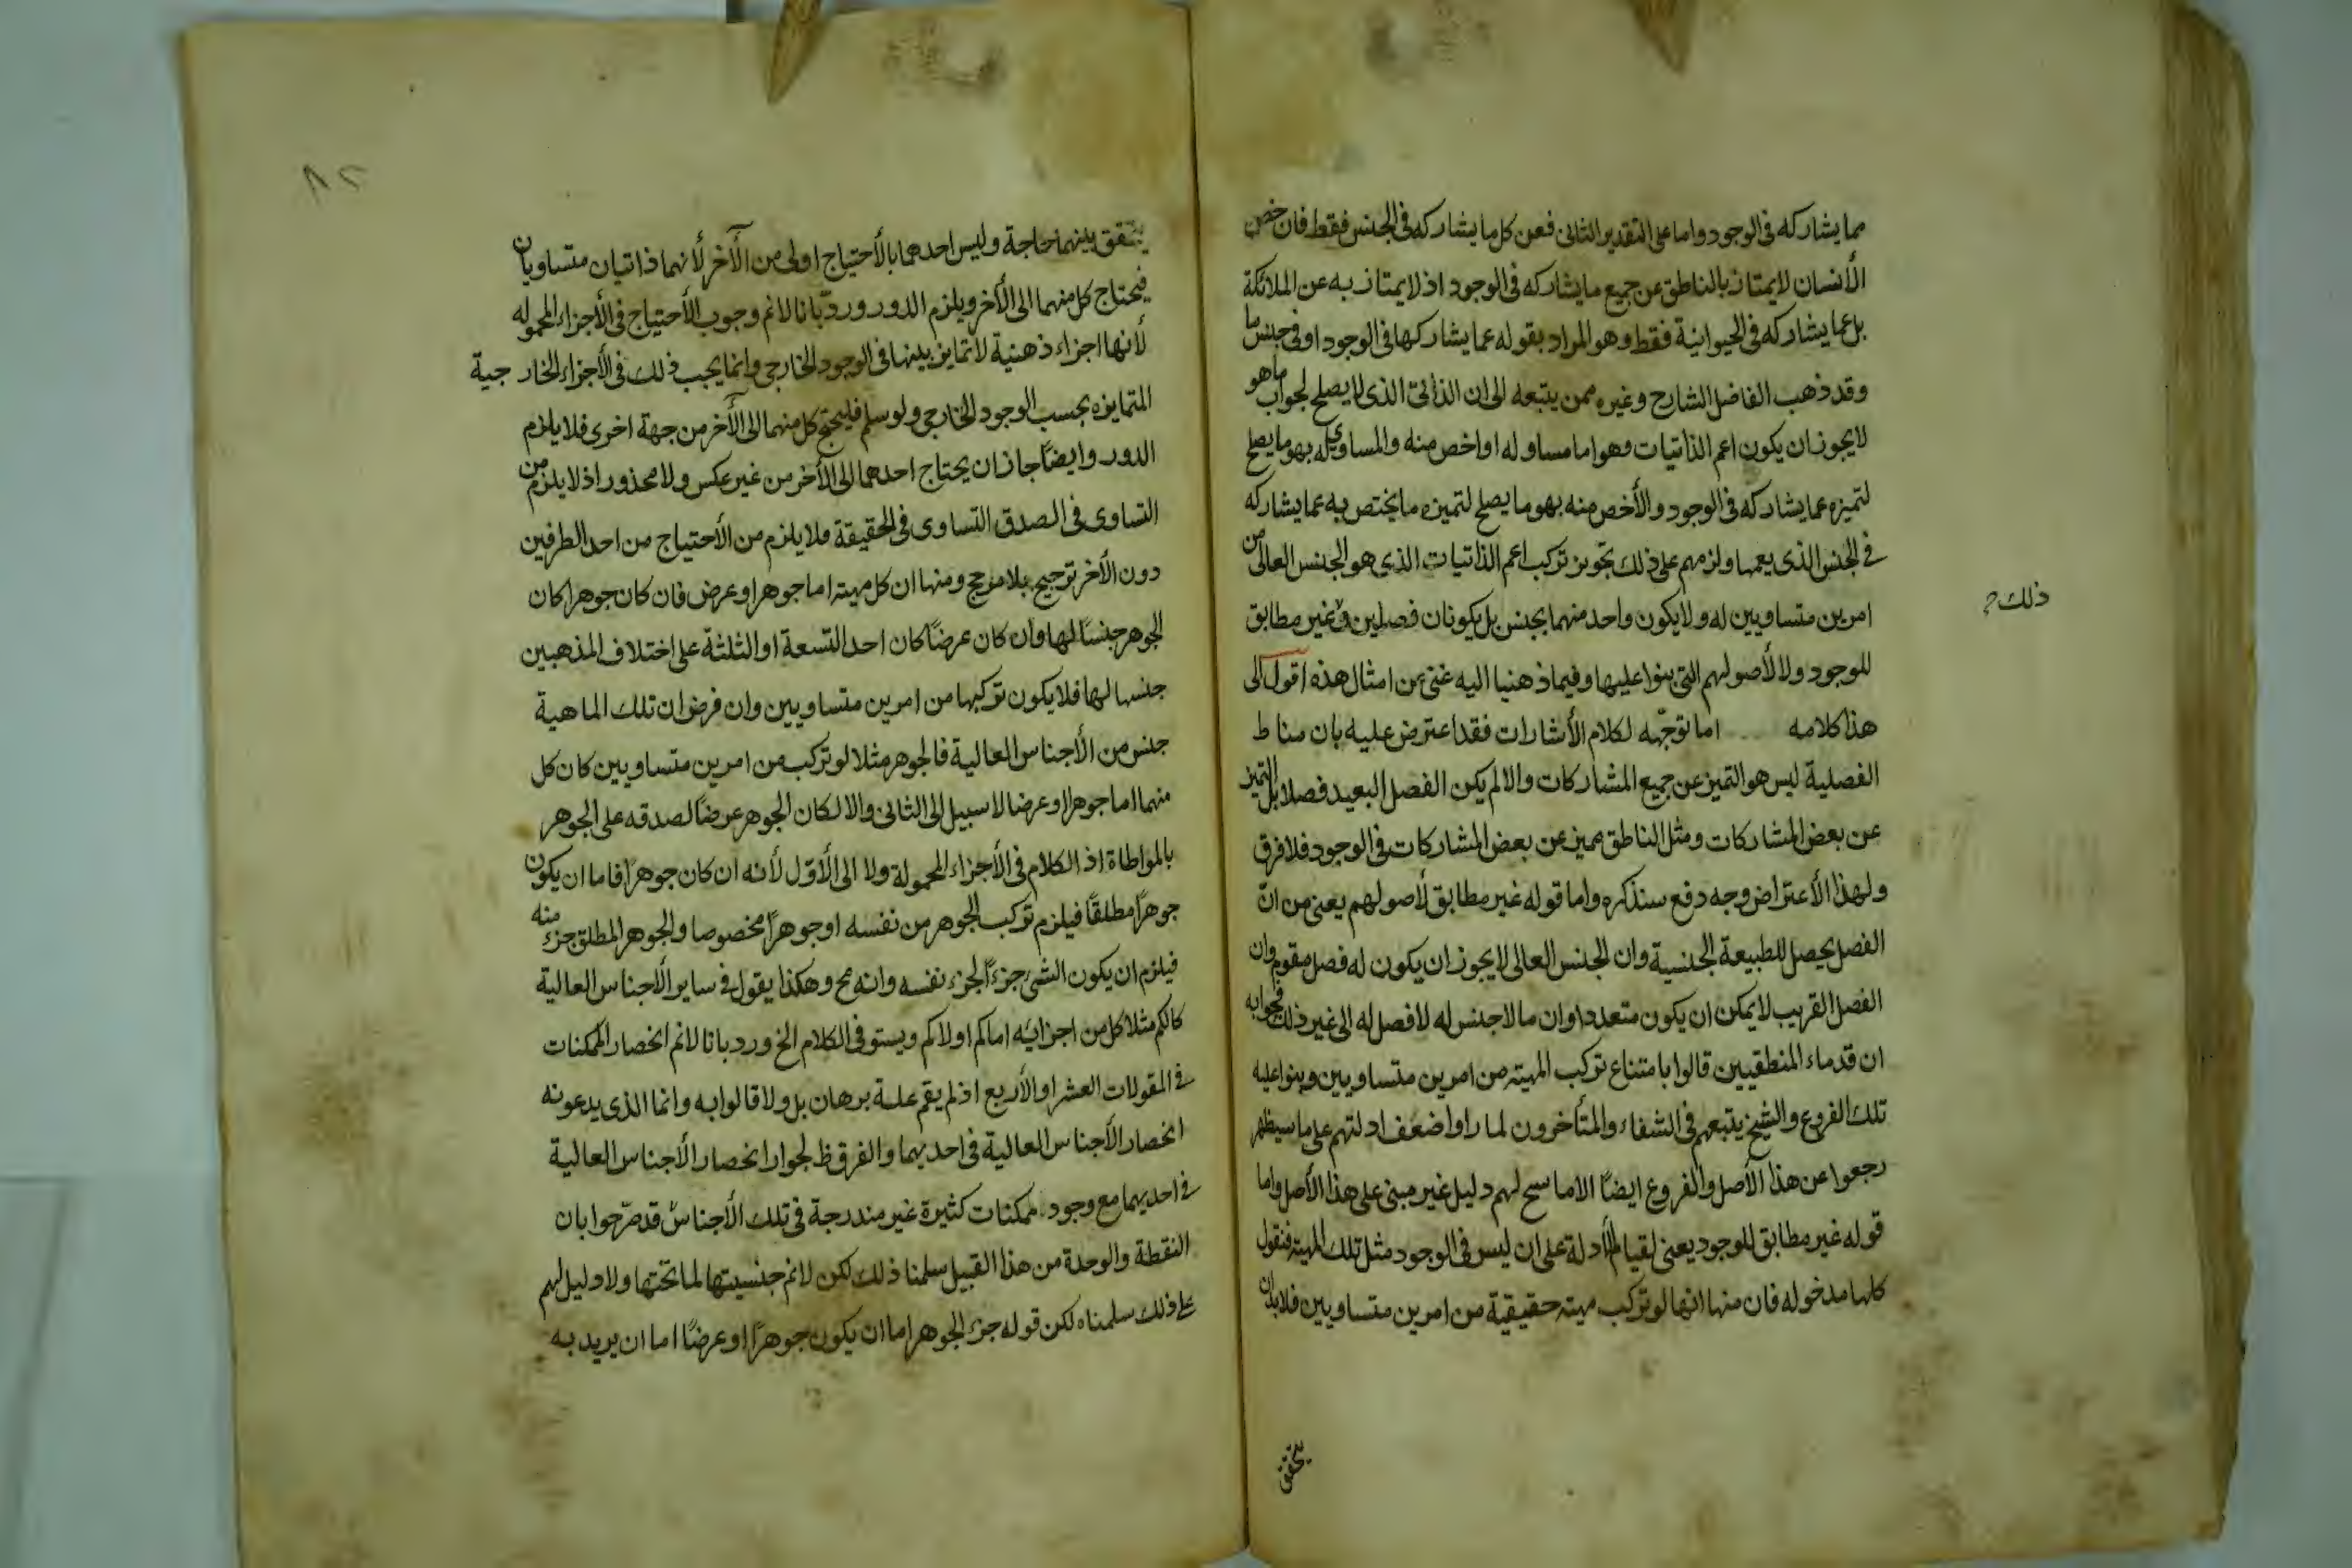 مما يشاركه فى الوجود واما على التقدير الثانى فعن كل ما يشاركه فى الجنس فقط فان خص
الأنسان لايمتاز بالناطق عن جميع ما يشاركه فى الوجود اذ لا يمتاز به عن الملائكة
بل عما يشاركه فى الحيوانية فقط وهو المراد بقوله عما يشاركها فى الوجود او فى جنس ما
وقد ذهب الفاضل الشارح وغيره ممن يتبعه الى ان الذاتى الذى لا يصلح لجواب ما هو
لايجوز ان يكون اعم الذاتيات وهو اما مساو له او اخص منه والمساوى له بهو ما يصلح
لتميزه عما يشاركه فى الوجود والأخص منه بهو ما يصلح لتميزه ما يختص به عما يشاركه
فى الجنس الذى يعمها ولزمهم على ذلك تجويز تركب اعم الذاتيات الذى هو الجنس العالى من
امرين متساويين له ولا يكون واحد منهما بجنس بل يكونان فصلين وغير مطابق
ذلك
للموجود ولا لأصولهم التى بنوا عليها وفيما ذهبنا اليه غنى عن امثال هذه اقول الى
هذا كلامه اما توجّهه لكلام الأشارات فقد اعترض عليه بان مناط
الفصلية ليس هو التميز عن جميع المشاركات والا لم يكن الفصل البعيد فصلا بل التميز
عن بعض المشاركات ومثل الناطق مميز عن بعض المشاركات فى الوجود فلا فرق
ولهذا الأعتراض وجه دفع سنذكره واما قوله غير مطابق لأصولهم يعنى من انّ
الفصل يحصل للطبيعة الجنسية وان الجنس العالى لا يجوز ان يكون له فصل مقوم وان
الفصل القريب لا يمكن ان يكون متعددا وان ما لا جنس له لا فصل له الى غير ذلك فجوابه
ان قدماء المنطقيين قالوا بامتناع تركب المهيته من امرين متساويين وبنوا عليه
تلك الفروع والشيخ يتبعهم فى الشفاء والمتأخرون لما راوا ضعف ادلتهم على ما سيظهر
رجعوا عن هذا الأصل والفروع ايضًا الا ما سح لهم دليل غير مبنى على هذا الأصل واما
قوله غير مطابق للموجود يعنى لقيام الأدلة على ان ليس فى الوجود مثل تلك المهيته فنقول
كلها مدخوله فان منها انها لو تركب مهيته حقيقية من امرين متساويين فلا بد ان
يتحقق
٨٢
يتحقق بينهما حاجة وليس احدهما بالأحتياج اولى من الآخر لأنهما ذاتيان متساويان
فيحتاج كل منهما الى الأخر ويلزم الدور وردّ بانا لانم وجوب الأحتياج فى الأجزاء المحموله
لأنها اجزاء ذهنية لا تمايز بينها فى الوجود الخارجى وانما يجب ذلك فى الأجزاء الخارجية
المتمايزه بحسب الوجود الخارجى ولو سلم فليحتج كل منهما الى الآخر من جهة اخرى فلا يلزم
الدور وايضًا جاز ان يحتاج احدهما الى الأخر من غير عكس ولا محذور اذ لا يلزم من
التساوى فى الصدق التساوى فى الحقيقة فلا يلزم من الأحتياج من احد الطرفين
دون الأخر ترجيح بلا مرجح ومنها ان كل مهيته اما جوهر او عرض فان كان جوهرا كان
الجوهر جنسًا لها وان كان عرضًا كان احد التسعة او الثلثة على اختلاف المذهبين
جنسها لها فلا يكون تركبها من امرين متساويين وان فرض ان تلك الماهية
جنس من الأجناس العالية فالجوهر مثلا لو تركب من امرين متساويين كان كل
منهما اما جوهرا او عرضا لا سبيل الى الثانى والا لكان الجوهر عرضًا لصدقه على الجوهر
بالمواطاة اذ الكلام فى الأجزاء المحمولة ولا الى الأوّل لأنه ان كان جوهرًا فاما ان يكون
جوهرًا مطلقًا فيلزم تركب الجوهر من نفسه او جوهرًا مخصوصا والجوهر المطلق جزء منه
فيلزم ان يكون الشئ جزءًا لجزء نفسه وانه مح وهكذا يقول فى ساير الأجناس العالية
كالكم مثلا كل من اجزايه اما كم او لا كم ويستوفى الكلام الخ ورد بانا لانم انحصار الممكنات
فى المقولات العشر او الأربع اذ لم يقم علية برهان بل ولا قالوا به وانما الذى يدعونه
انحصار الأجناس العالية فى احديهما والفرق ظ لجواز انحصار الأجناس العالية
فى احديهما مع وجود ممكنات كثيرة غير مندرجة فى تلك الأجناس قد صرّحوا بان
النقطة والوحدة من هذا القبيل سلمنا ذلك لكن لانم جنسيتها لما تحتها ولا دليل لهم
على ذلك سلمناه لكن قوله جزء الجوهر اما ان يكون جوهرًا او عرضًا اما ان يريد به